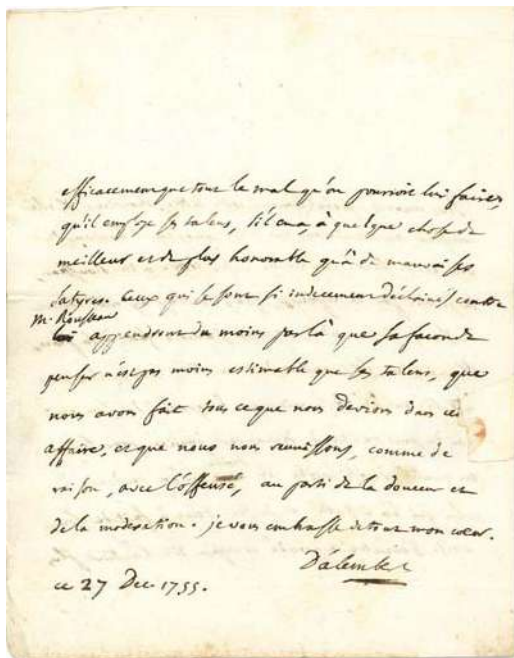 efficacement que tout le mal qu'on pourroit lui faire,
qu'il employe ses talens, s'il en a, à quelque chose de
meilleur et de plus honorable qu'à de mauvaises
satyres. Ceux qui se sont si indecemment déchainés contre
M. Rousseau
apprendront du moins par là que sa façon de
penser n'est pas moins estimable que ses talens, que
nous avons fait tous ce que nous devions dans cette
affaire, et que nous nous reunissons, comme de
raison, avec l'offensé, au parti de la douceur et
de la moderation. je vous embrasse de tout mon coeur.
D'alembert
ce 27 Dec. 1755.